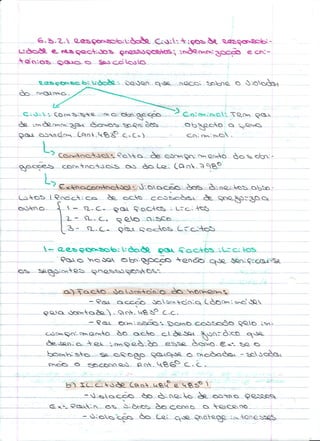 6.3.2.1 Responsabilidade Civil: tipos de Responsabi-
lidade e respectivos pressupostos; indemnização e cri-
térios para o seu cálculo
Responsabilidade: dever que recai sobre o violador
da norma.
Civil: Consiste na obrigação Criminal: Tem por
de indemnizar danos sofridos objecto o crime
por outrem (Art. 483º C.C.) criminal.
Contractual: Falta de cumprimento das obri-
gações contractuais ou da Lei. (Art. 798º
Extracontractual: Violação dos direitos abso-
lutos / Prática de acto causador de prejuízo a
outrem. 1 - R.C. por factos ilícitos
2 - R.C. pelo risco
3 - R.C. por factos lícitos
1- Responsabilidade por factos ilícitos
Para haver obrigação tenão que verificar-se
os seguintes pressupostos:
a) Facto voluntário do homem;
- Por acção voluntária (dominável
pela vontade). Art. 483º C.C.
- Por omissão: Dano causado pelo in-
cumprimento do acto
deveria ter impedido esse dano Ex: Se o
bombista se afoga porque o nadador-salvador
não o socorreu Art. 486º C.C.
b) Ilicitude (Art. 483º e 485º)
- Violação do direito de outra pessoa
Ex: Partir os vidros do carro a terceiro
- Violação da Lei que protege interesses